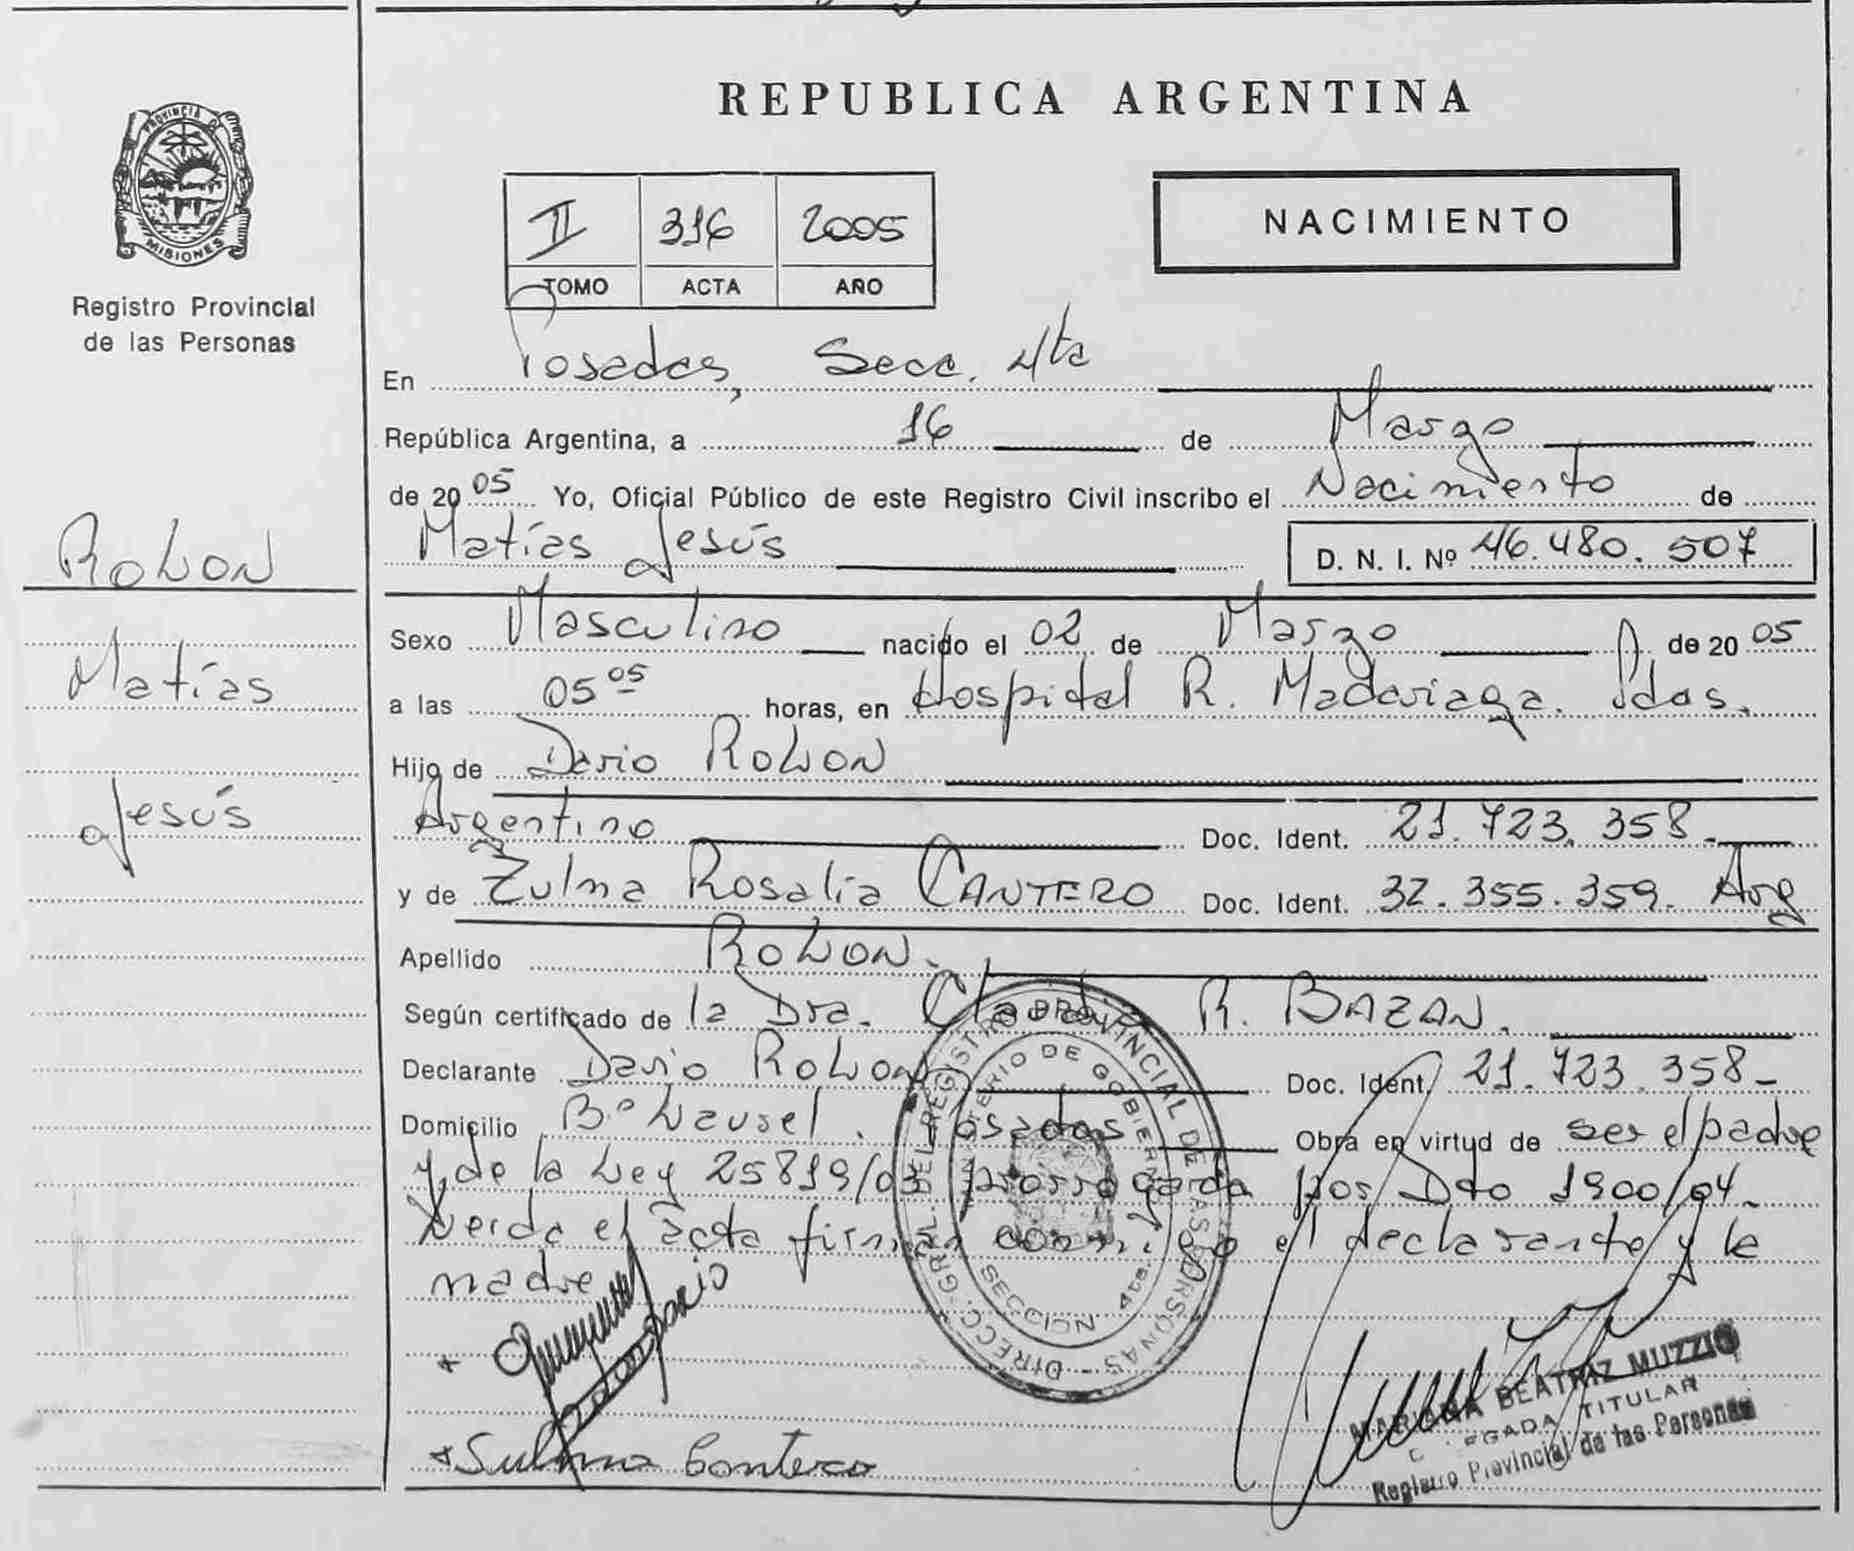 REPUBLICA ARGENTINA
PROVINCIA DE
MISIONES
Registro Provincial
de las Personas
II 316 2005
TOMO ACTA AÑO
NACIMIENTO
En Posadas, Secc. 4ta
República Argentina, a 16 de Marzo
de 2005 Yo, Oficial Público de este Registro Civil inscribo el Nacimiento de
Matías Jesús D. N. I. Nº 46.480.507
ROLON
Matías
Jesús
Sexo Masculino nacido el 02 de Marzo de 2005
a las 05 05 horas, en Hospital R. Madariaga. Pdas.
Hijo de Dario ROLON
Argentino Doc. Ident. 21.723.358.-
y de Zulma Rosalía CANTERO Doc. Ident. 32.355.359. Arg
Apellido ROLON.
Según certificado de la Dra. R. BAZAN.
Declarante Dario ROLON Doc. Ident. 21.723.358-
Domicilio Bº Lausel. Posadas Obra en virtud de ser el padre
y de la Ley 25819/03 prorrogada por Dto 1900/04.
Leida el acta firman conmigo el declarante y la
madre
DIRECC. GRAL. DEL REGISTRO PROVINCIAL DE LAS PERSONAS
MINISTERIO DE GOBIERNO
SECCION 4ta.
Rolon Dario
Sulma Cantero
MARIANA BEATRIZ MUZZIO
DELEGADA TITULAR
Registro Provincial de las Personas